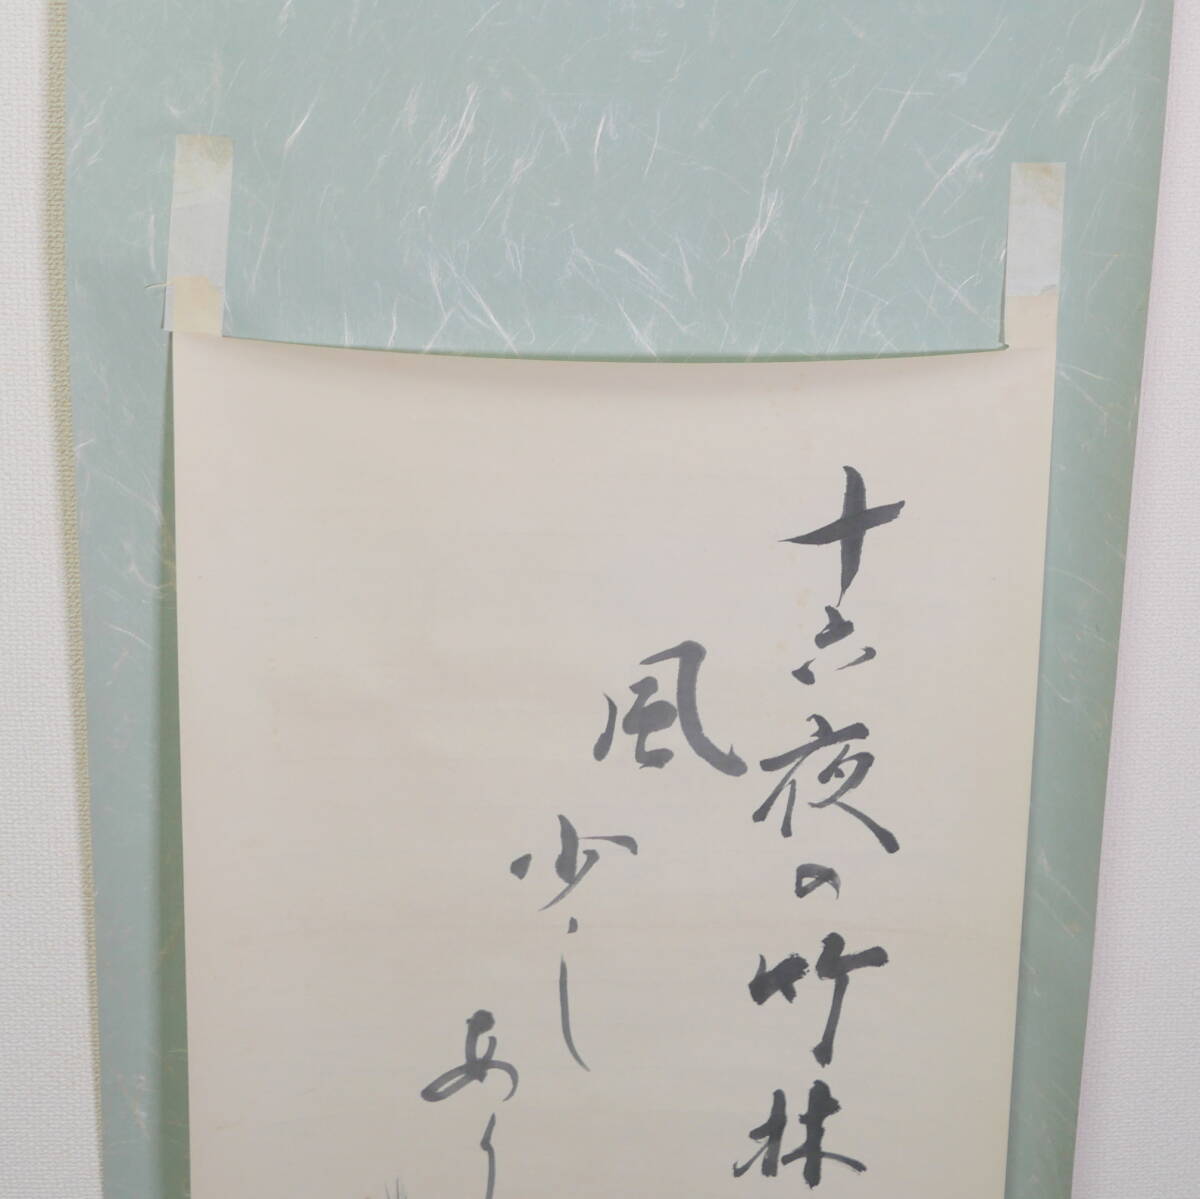 十六夜の竹林
風少しあり